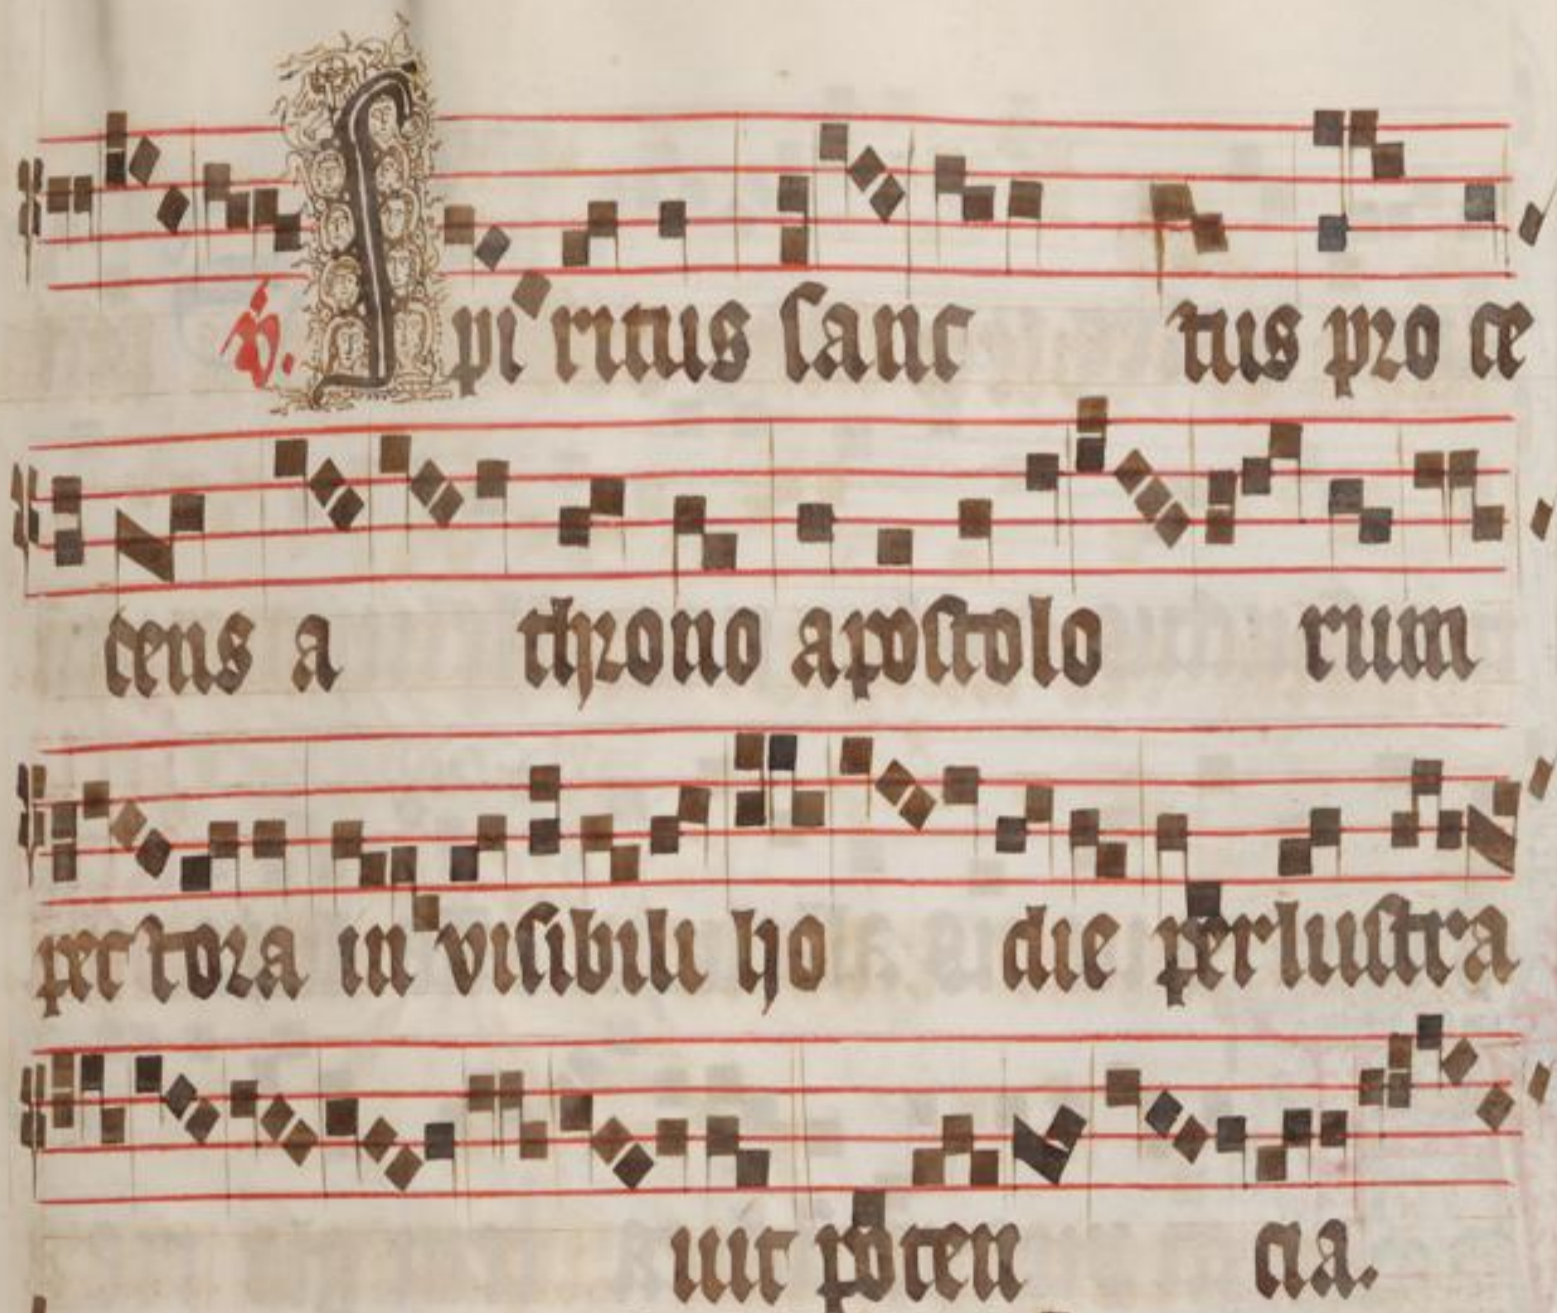 V. Spiritus sanc tus pro ce
dens a throno apostolo rum
pec tora in visibili ho die perlustra
uit poten cia.